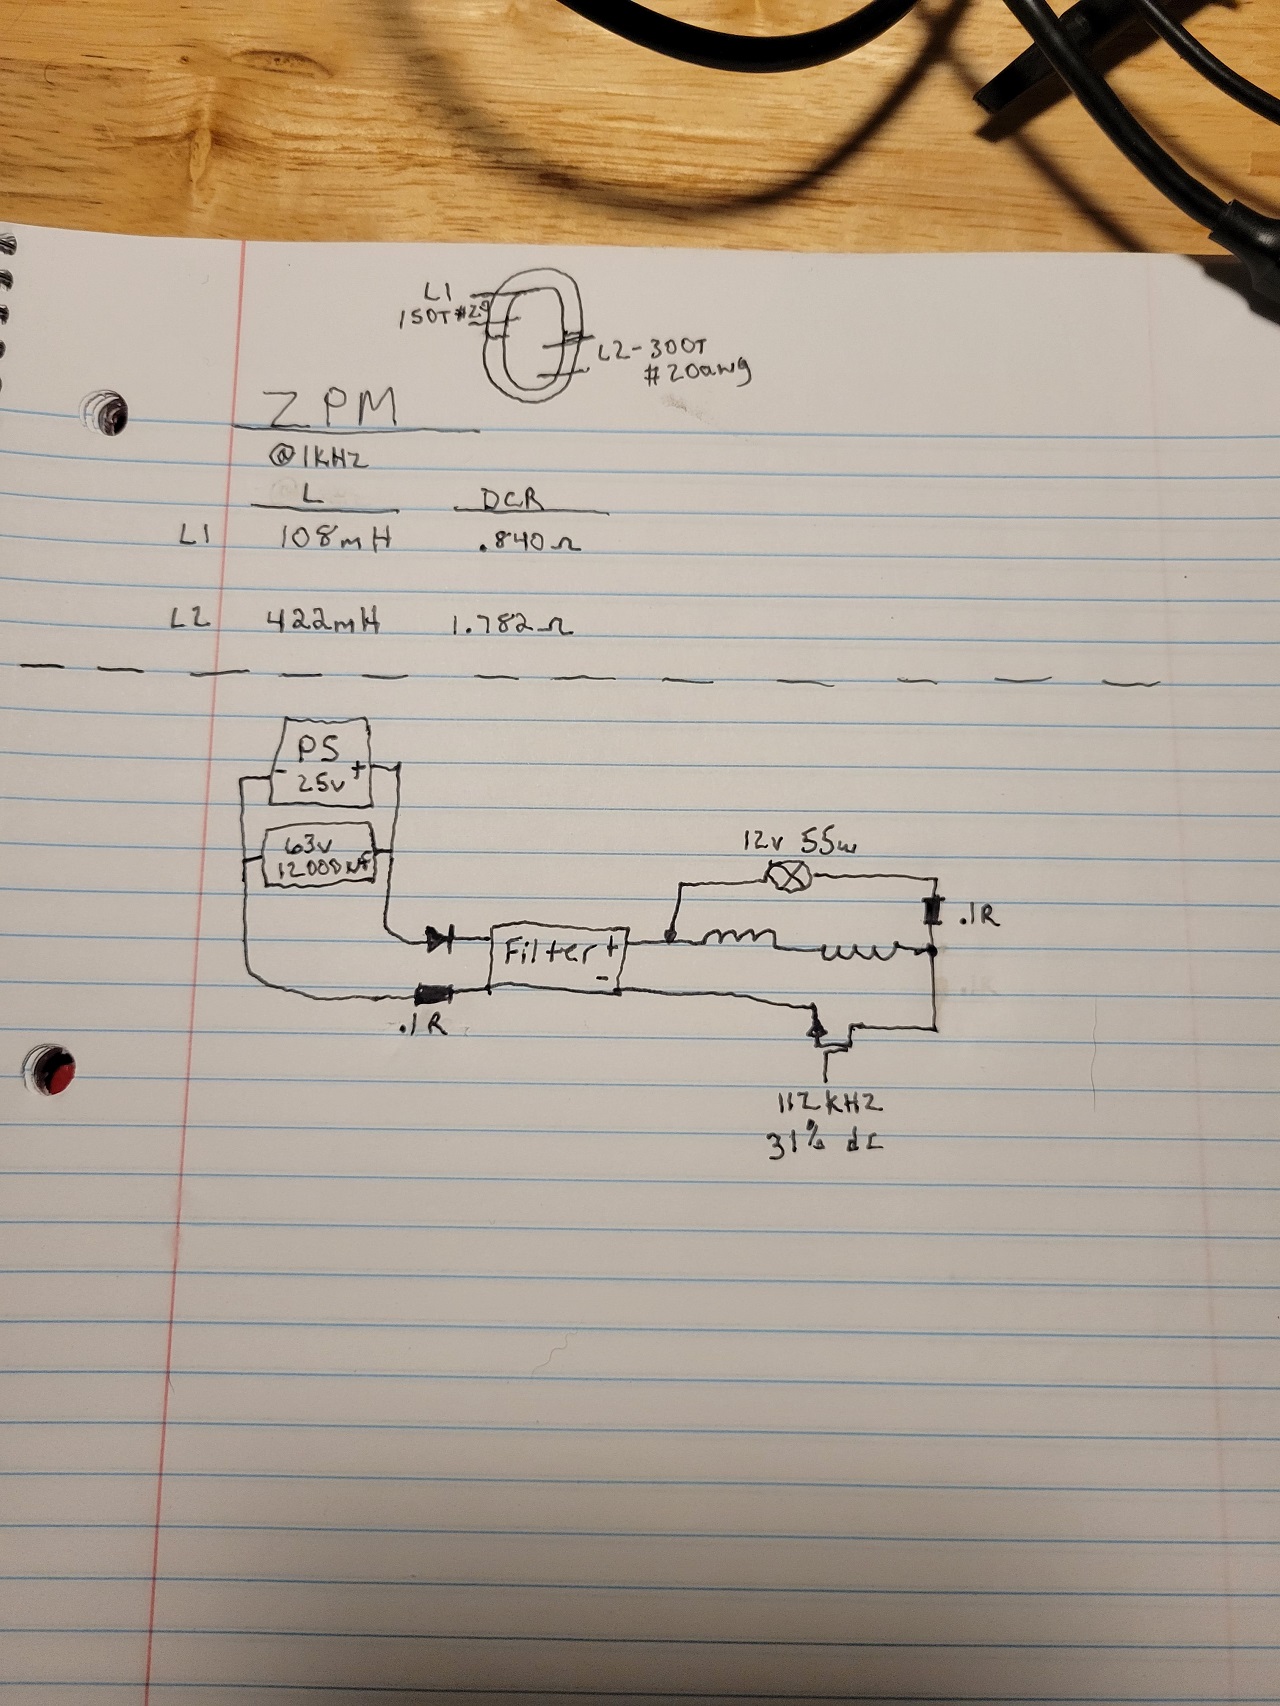 L1
150T #29
L2-300T
#20awg
ZPM
@1KHz
L DCR
L1 108mH .840Ω
L2 422mH 1.782Ω
PS
- +
25v
63v
12000uf
12v 55w
.1R
Filter +
-
.1R
112kHz
31% dc